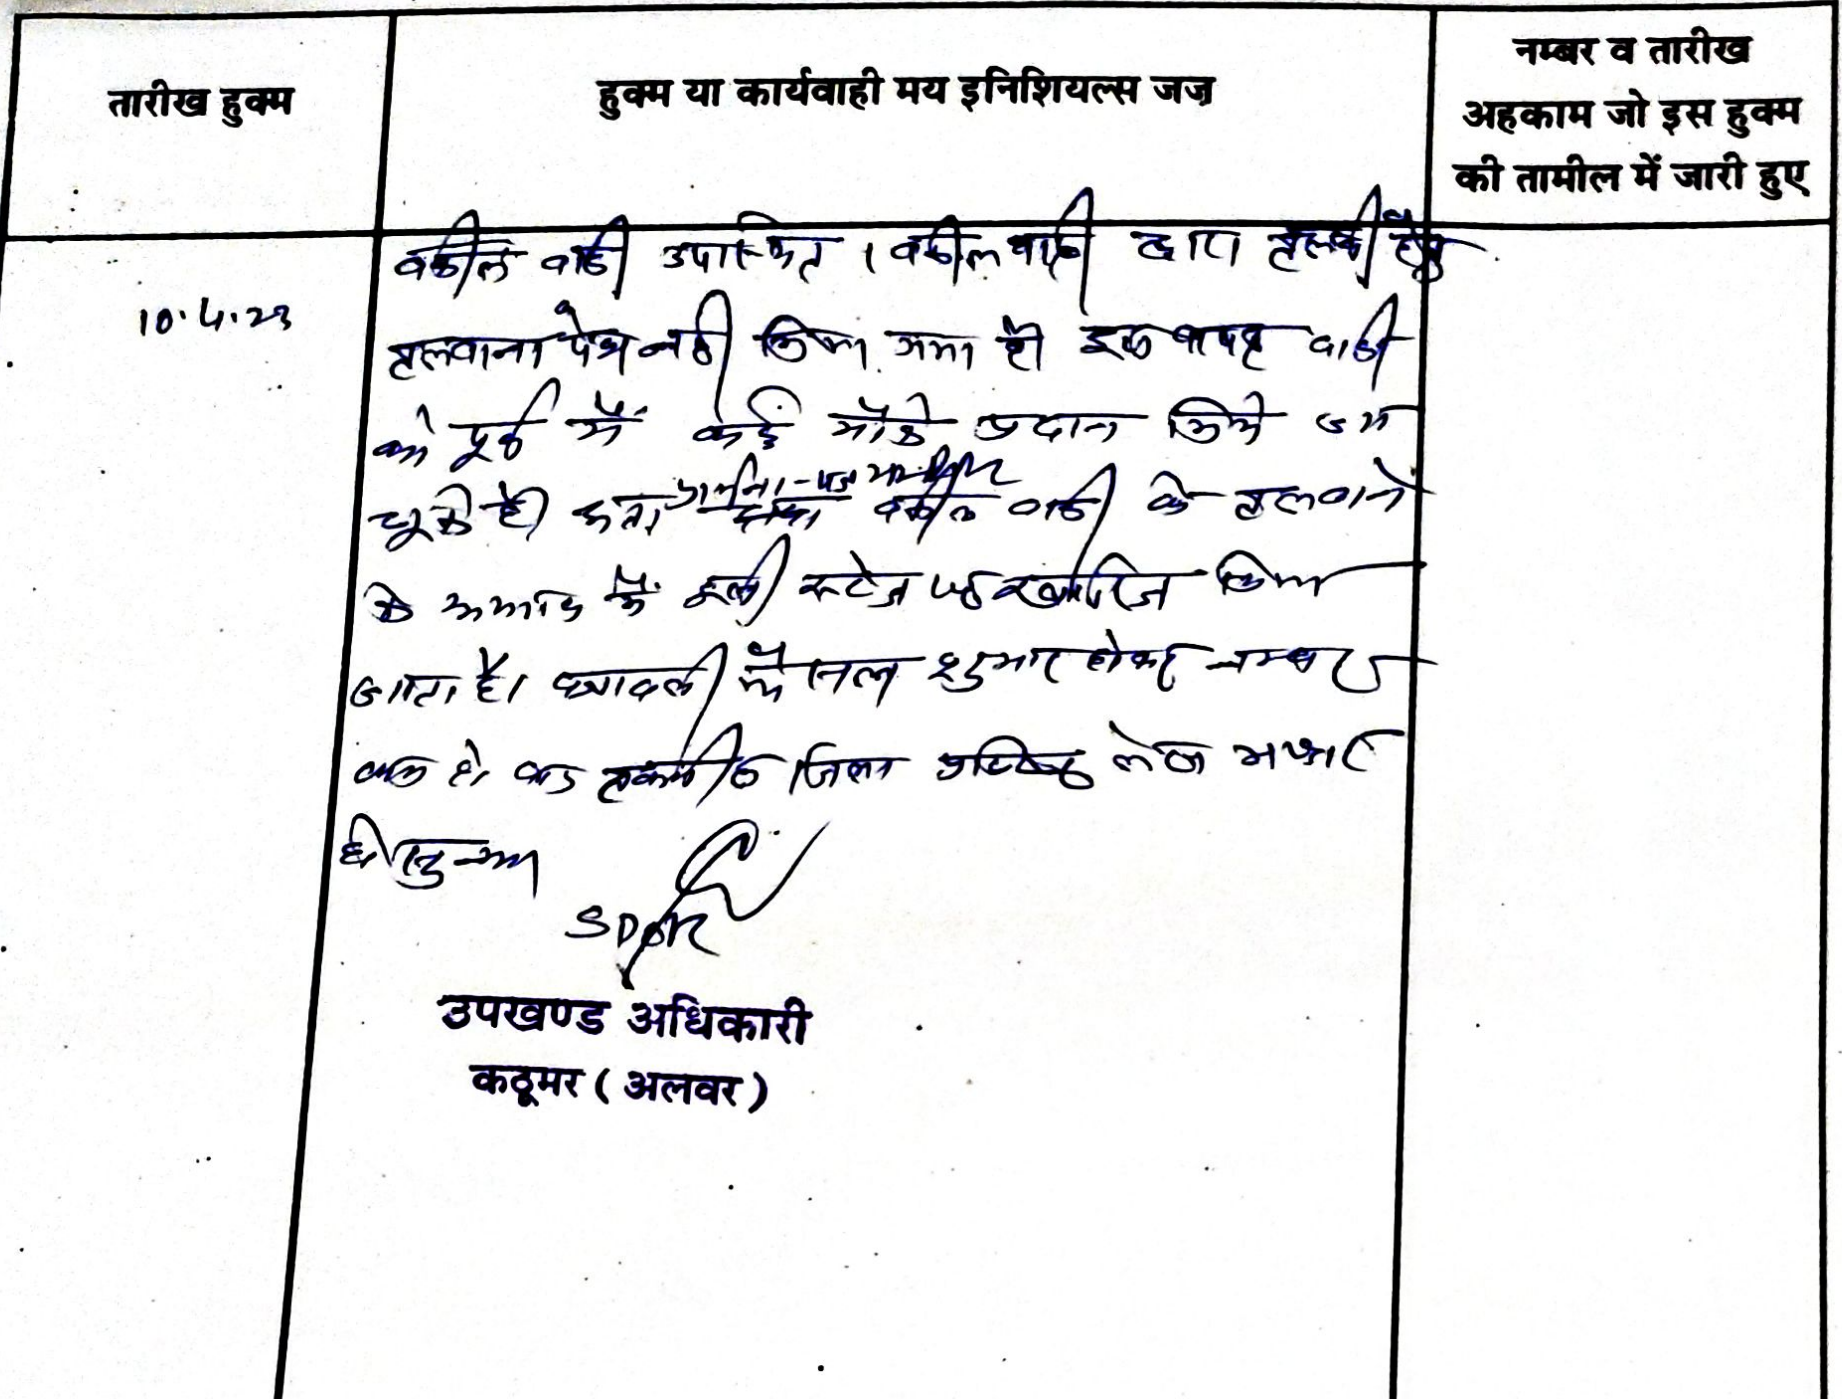 तारीख हुक्म
हुक्म या कार्यवाही मय इनिशियल्स जज
नम्बर व तारीख
अहकाम जो इस हुक्म
की तामील में जारी हुए
10.4.23
वकील वादी उपस्थित । वकील वादी द्वारा तलबी हेतु
तलवाना पेश नही किया गया है। इस बाबत वादी
को पूर्व में कई मौके प्रदान किये जा
चूके है। अतः प्रार्थना-पत्र वकील वादी के तलवाने
के अभाव में इसी स्टेज पर खारिज किया
जाता है। पत्रावली फैसल शुमार होकर नम्बर से
कम हो बाद तकमील जिला अभिलेखागार
हो।
SDM
उपखण्ड अधिकारी
कठूमर ( अलवर )